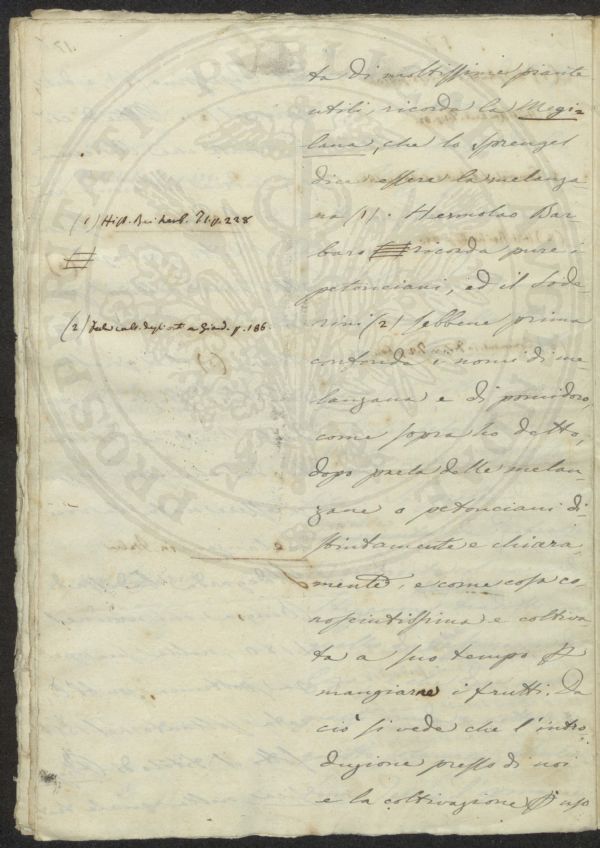 ta di moltissime piante
utili, ricorda la Megi=
lana, che lo Sprengel
dice essere la melanza
na (1). Hermolao Bar
baro ricorda pure i
petonciani, ed il Sode
rini (2) sebbene prima
confonda i nomi di me
lanzana e di pomidoro,
come sopra ho detto,
dopo parla delle melan
zane o petonciani di=
stintamente e chiara
mente, e come cosa co
nosciutissima e coltiva
ta a suo tempo p
mangiarne i frutti. Da
ciò si vede che l'intro
duzione presso di noi
e la coltivazione p uso
(1) Hist. Rei herb. T.1.p.228
(2) cult. degli orti e Giard. p. 186.
PROSPERITATI PUBLI